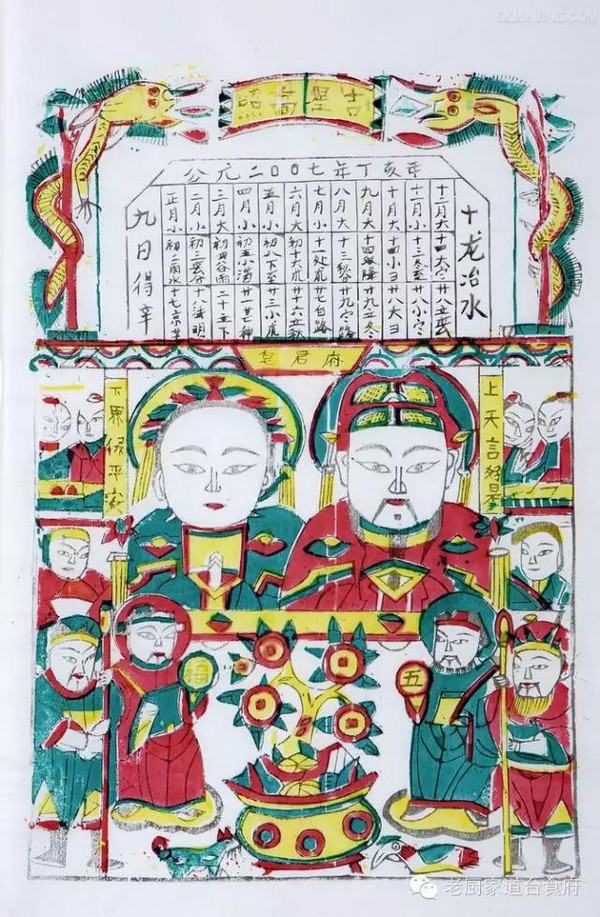 QUANJING.COM
吉星高照
公元二〇〇七年丁亥年
九日得辛
正月小 初二雨水
二月小 初三春分 十八清明
三月大 初四谷雨 二十立下
四月小 初五小满 廿一芒种
五月小 初八下至 廿三小
六月大 初十大 廿六立秋
七月小 十一处 廿七白路
八月大 十三秋分 廿九
九月大 十四双降 廿九立冬
十月大 十四小ヨ 廿八大ヨ
十一月小 十三冬至 廿八小
十二月大 十四大 廿八立春
十龙治水
灶君府
下界保平安
上天言好事
福
五
老厨家道台食府